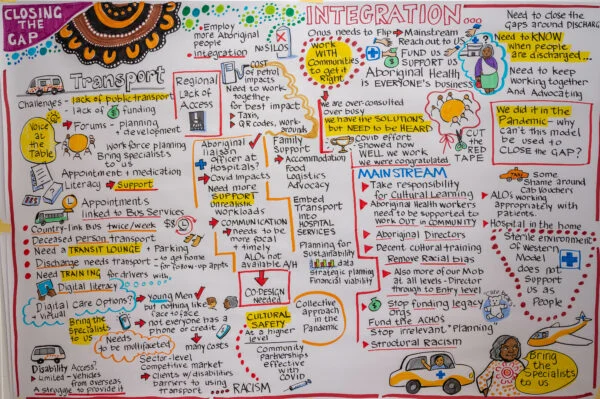 CLOSING
THE
GAP
Employ
more
Aboriginal
people
integration
NO SILOS
Transport
Challenges - lack of public transport
lack of funding
Voice
at the
Table
Forums - Planning
development
work force planning
Bring specialists
to us
Appointment + medication
Literacy Support
Appointments
linked to Bus Services
Country-link BUS twice/week
Deceased person transport
Need a TRANSIT LOUNGE + Parking
Discharge needs transport - to get home
- for follow-up appts
Need TRAINING for drivers with
Digital literacy
Digital Care Options?
virtual
Young Men
but nothing like
face to face
Bring the
Specialists
to us
not everyone has a
phone or credit
many costs
Need to be
multifaceted
Sector-level
Competitive market
Clients w/ disabilities
barriers to using
transport
RACISM
Disability Access?
Limited - vehicles
from overseas
A struggle to provide it
Regional
Lack of
Access
COST
of petrol
impacts
Need to work
together
for best impact
Taxis,
QR codes, work
arounds
Aboriginal
Liaison
Officer at
Hospitals?
Covid impacts
Need more
SUPPORT
unrealistic
workloads
COMMUNICATION
needs to be
more focal
+ timely
ALOs not
available A/H
CO-DESIGN
Needed
CULTURAL
SAFETY
At a higher
level
Community
partnerships
effective
with COVID
Family
Support
Accommodation
Food
Logistics
Advocacy
Embed
Transport
into
HOSPITAL
SERVICES
Planning for
Sustainability
at a
strategic planning
Financial viability
Collective
approach
in the
Pandemic
INTEGRATION...
Onus needs to Flip Mainstream
Reach out to US
FUND US
SUPPORT US
Work
WITH
Communities
to get it
Right
Aboriginal Health
is EVERYONE's business
We are over-consulted
over busy
We have the SOLUTIONS
but NEED TO BE HEARD
Covid effort
showed how
WELL we work
we were congratulated
CUT
the
RED
TAPE
Need to close the
Gaps around DISCHARG
Need to KNOW
when people
are discharged...
Need to keep
working together
And Advocating
We did it in the
Pandemic - why
can't this model
be used to
CLOSE the GAP?
MAINSTREAM
Take responsibility
for Cultural Learning
Aboriginal Health workers
need to be supported to
work OUT in COMMUNITY
Aboriginal Directors
Decent cultural training
Remove Racial bias
Also more of our Mob
at all levels - Director
through to Entry level
Stop funding legacy
orgs
Fund the ACHOS
Stop irrelevant "Planning
Structural RACISM
Some
Shame around
Cab Vouchers
ALO's working
appropriately with
Patients.
Hospital in the home
Sterile environment
of Western
Model
does not
Support
us as
People
Bring
the
Specialists
to us